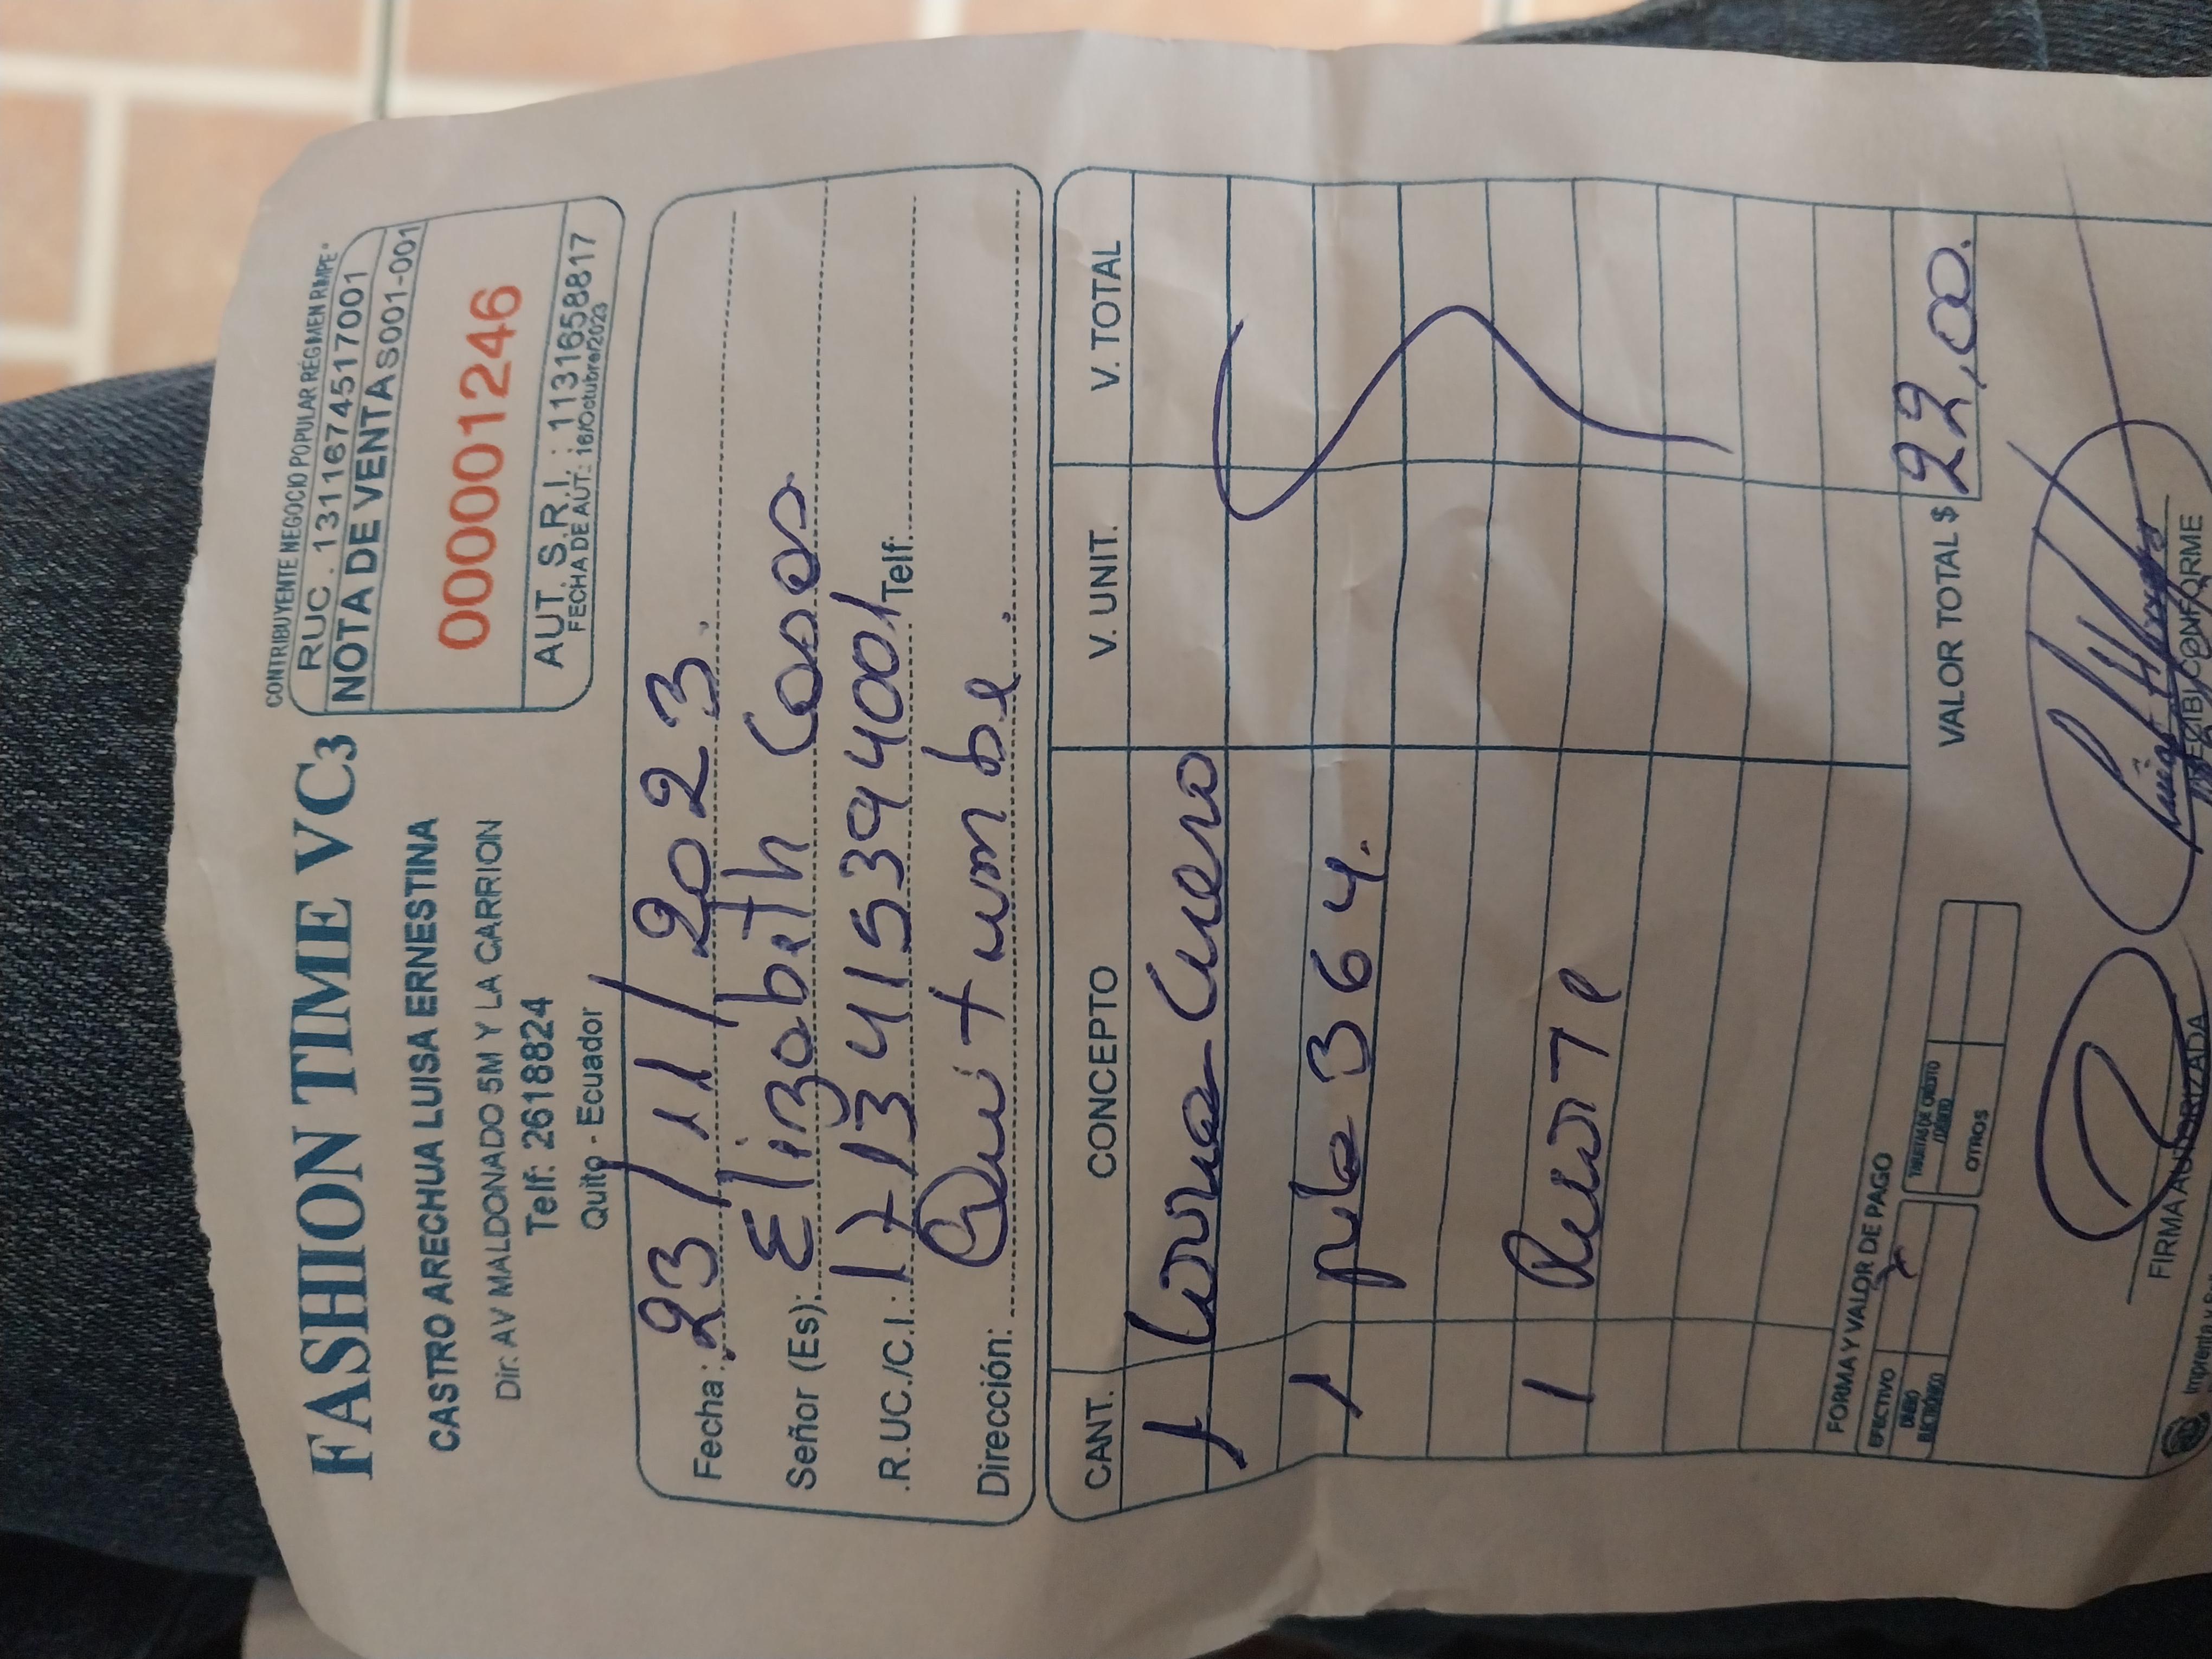 FASHION TIME VC3
CASTRO ARECHUA LUISA ERNESTINA
Dir: AV MALDONADO 5M Y LA CARRION
Telf: 2618824
Quito - Ecuador
CONTRIBUYENTE NEGOCIO POPULAR RÉGIMEN RIMPE"
RUC . 1311674517001
NOTA DE VENTA S001-001
000001246
AUT. S.R.I. : 1131658817
FECHA DE AUT.: 16/Octubre/2023
Fecha: 23/11/2023.
Señor (Es): Elizabeth
.R.UC./C.I.: 1713415394001 Telf:
Dirección: Quitumbe.
CANT. CONCEPTO V. UNIT. V. TOTAL
1 Correa Cuero
1 pila 364.
1
FORMA Y VALOR DE PAGO
EFECTIVO x
DINERO ELECTRÓNICO
OTROS
VALOR TOTAL $ 22,00.
FIRMA AUTORIZADA
RECIBI CONFORME